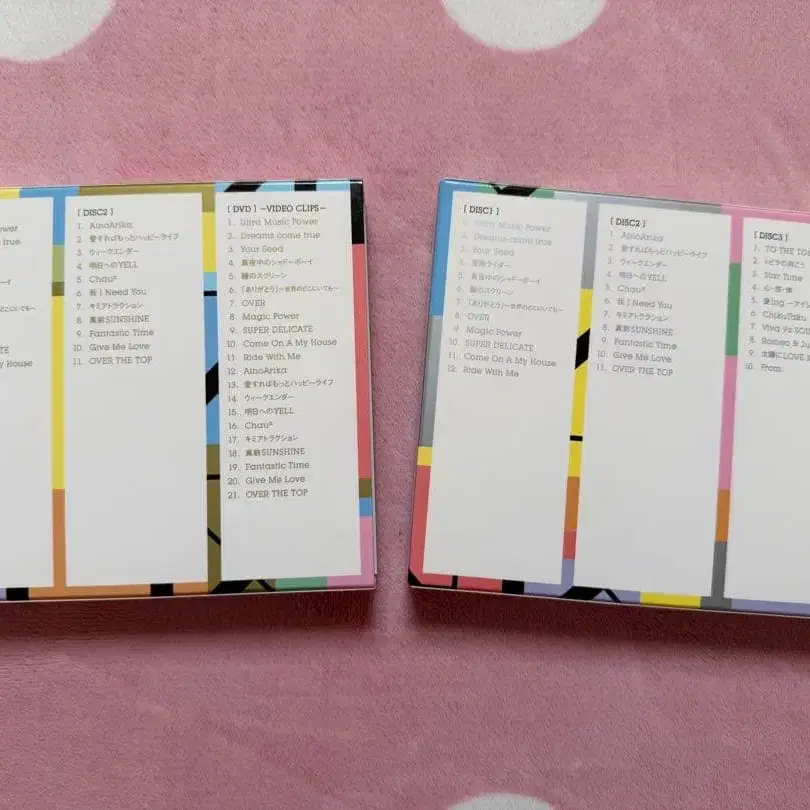 wer
true
イー
にいても〜
ATE
y House
[ DISC2 ]
1. AinoArika
2. 愛すればもっとハッピーライフ
3. ウィークエンダー
4. 明日へのYELL
5. Chau#
6. 我 I Need You
7. キミアトラクション
8. 真剣SUNSHINE
9. Fantastic Time
10. Give Me Love
11. OVER THE TOP
[ DVD ] —VIDEO CLIPS—
1. Ultra Music Power
2. Dreams come true
3. Your Seed
4. 真夜中のシャドーボーイ
5. 瞳のスクリーン
6. 「ありがとう」〜世界のどこにいても〜
7. OVER
8. Magic Power
9. SUPER DELICATE
10. Come On A My House
11. Ride With Me
12. AinoArika
13. 愛すればもっとハッピーライフ
14. ウィークエンダー
15. 明日へのYELL
16. Chau#
17. キミアトラクション
18. 真剣SUNSHINE
19. Fantastic Time
20. Give Me Love
21. OVER THE TOP
[ DISC1 ]
1. Ultra Music Power
2. Dreams come true
3. Your Seed
4. 冒険ライダー
5. 真夜中のシャドーボーイ
6. 瞳のスクリーン
7. 「ありがとう」〜世界のどこにいても〜
8. OVER
9. Magic Power
10. SUPER DELICATE
11. Come On A My House
12. Ride With Me
[ DISC2 ]
1. AinoArika
2. 愛すればもっとハッピーライフ
3. ウィークエンダー
4. 明日へのYELL
5. Chau#
6. 我 I Need You
7. キミアトラクション
8. 真剣SUNSHINE
9. Fantastic Time
10. Give Me Love
11. OVER THE TOP
[ DISC3 ]
1. TO THE TO
2. トビラの向こう
3. Star Time
4.
5. 愛ing
6. ChikuTaku
7. Viva
8. Romeo & Ju
9. 太陽にLOVE
10. From.